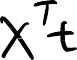 X^T t